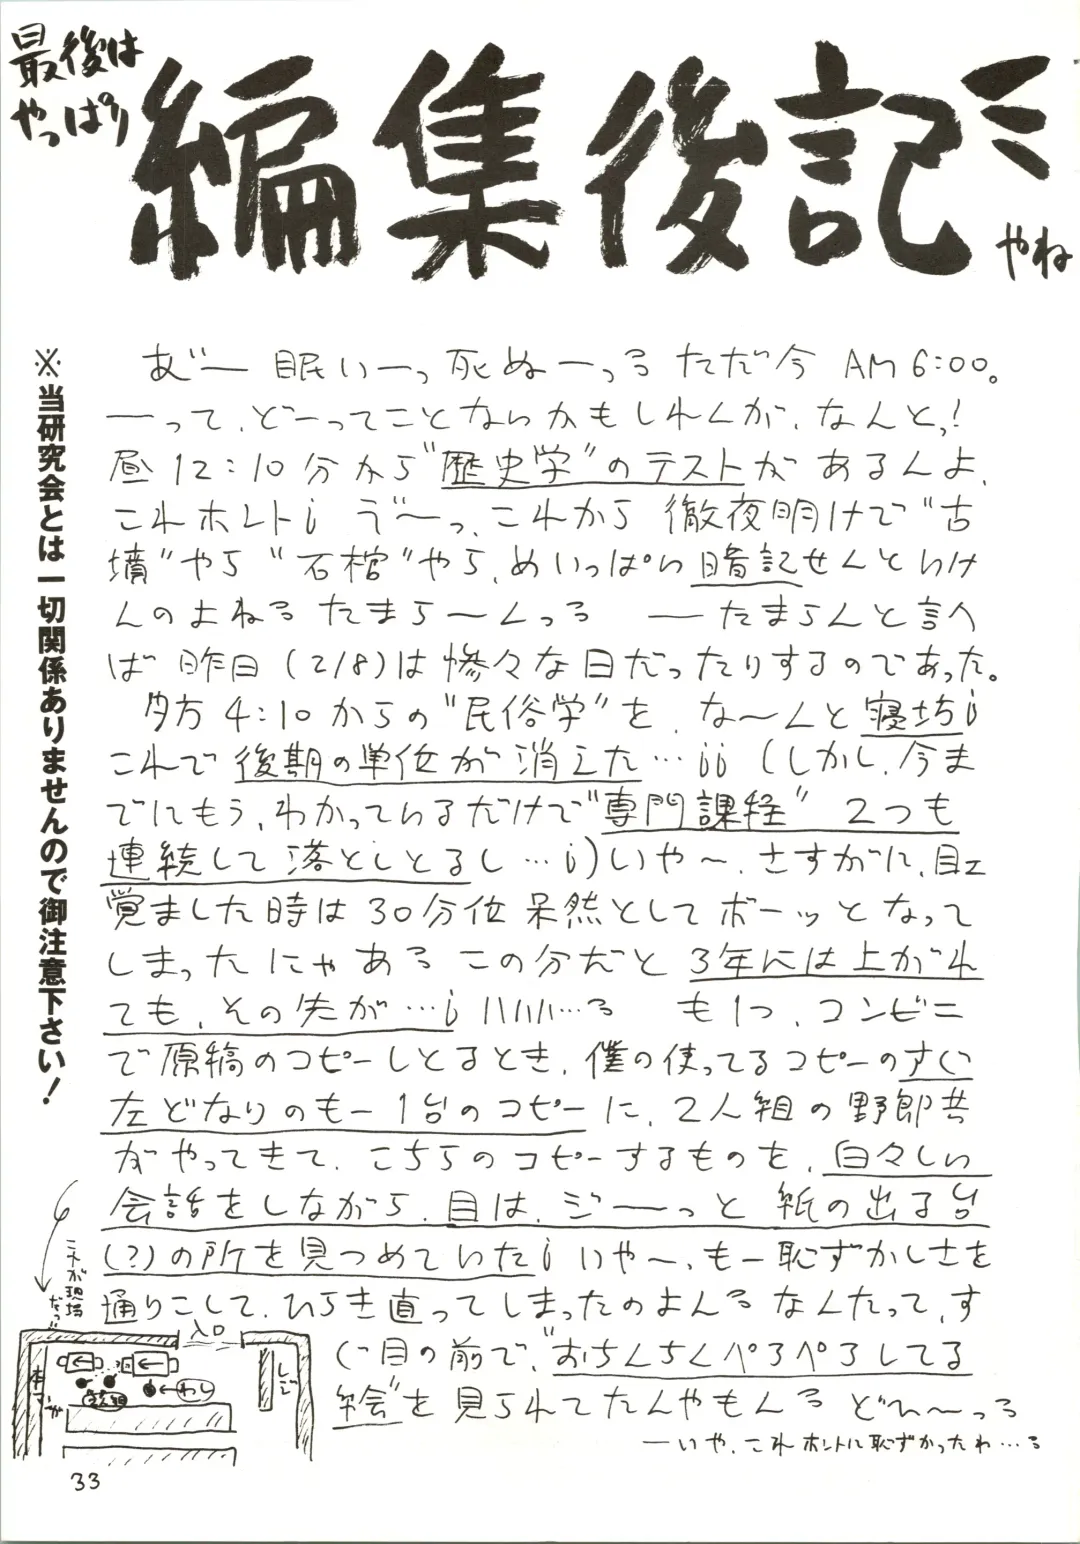 最後は
やっぱり
編集後記ミ
やね
※当研究会とは一切関係ありませんので御注意下さい！
あ゛ー 眠いーっ死ぬーっる ただ今 AM 6:00。
ーって、どーってことないかもしれんが、なんとっ!
昼12:10分から"歴史学"のテストがあるんよ、
これホントi う゛〜っ、これから徹夜明けで"古
墳"やら"石棺"やら、めいっぱい暗記せんといけ
んのよねる たまら〜んっる ーたまらんと言へ
ば昨日(2/8)は惨々な日だったりするのであった。
夕方4:10からの"民俗学"を、な〜んと寝坊i
これで後期の単位が消えた…ii (しかし、今ま
でにもう、わかっているだけで"専門課程" 2つも
連続して落としとるし…i)いや〜、さすがに、目エ
覚ました時は30分位呆然としてボーッとなって
しまったにゃある この分だと3年には上がれ
ても、その先が…i …る も1つ、コンビニ
で原稿のコピーしとるとき、僕の使ってるコピーのすぐ
左どなりのもー1台のコピーに、2人組の野郎共
がやってきて、こちらのコピーするものを、白々しい
会話をしながら、目は、ジーーっと紙の出る台
(?)の所を見つめていたi いや〜、もー恥ずかしさを
通りこして、ひらき直ってしまったのよんる なんたって、す
ぐ目の前で、"おちんちんペろペろしてる
絵"を見られてたんやもんる どひ〜っる
ーいや、これホントに恥ずかったわ…る
これが現場
だっ
入口
本
わし
レジ
33